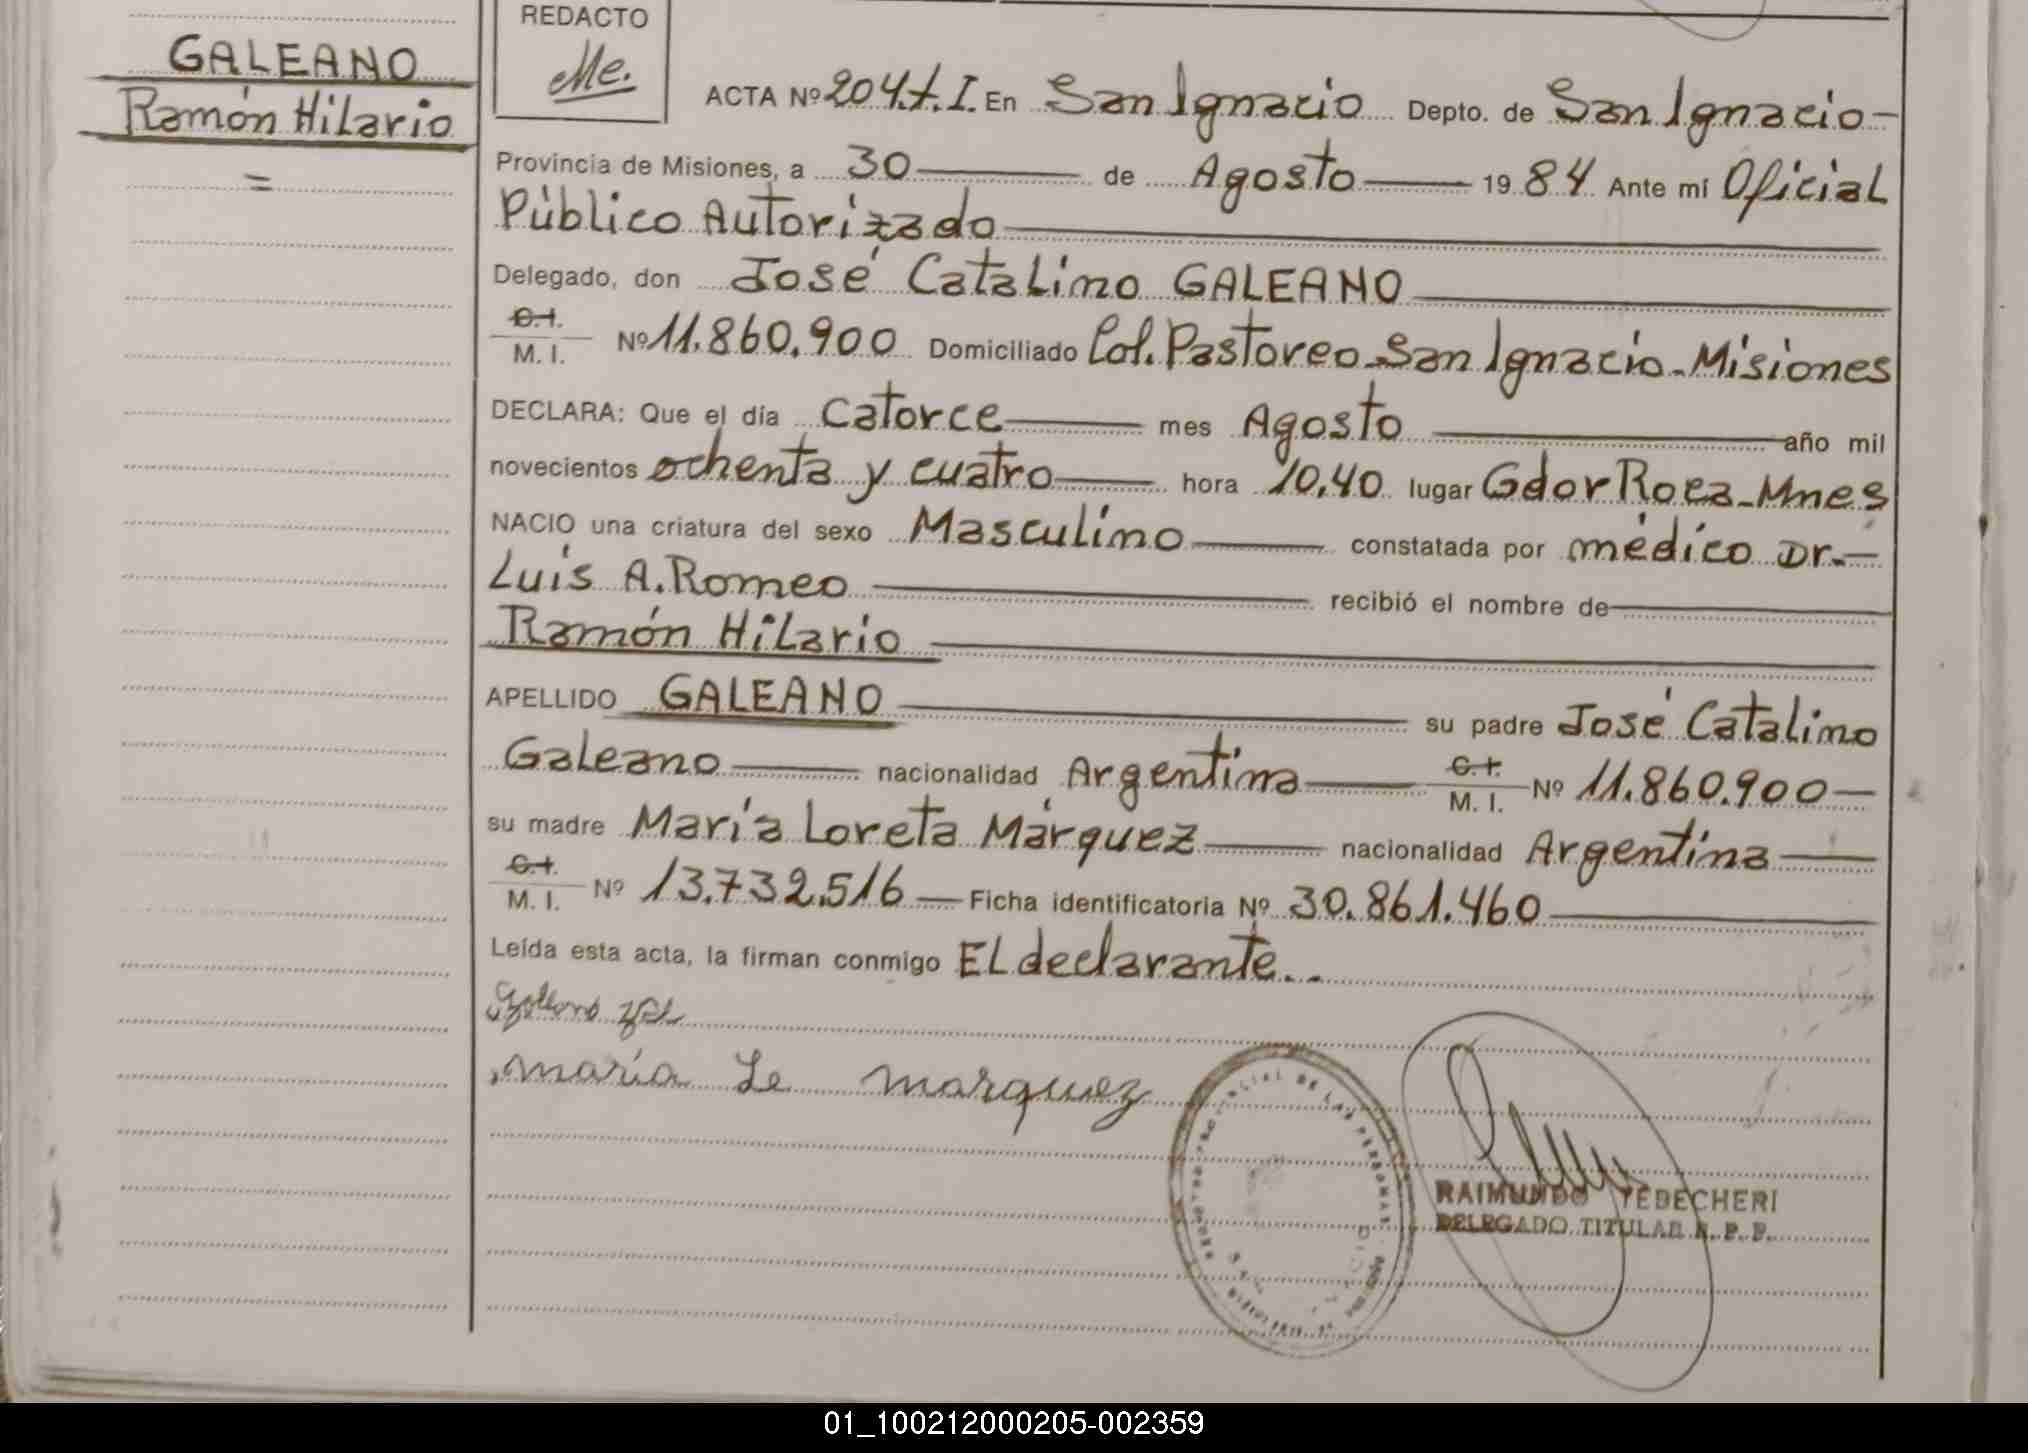 GALEANO
Ramón Hilario
=
REDACTO
Me.
ACTA Nº 204.t.I. En San Ignacio Depto. de San Ignacio-
Provincia de Misiones, a 30 de Agosto 1984 Ante mí Oficial
Público Autorizado
Delegado, don José Catalino GALEANO
C.I. / M. I. Nº 11.860.900 Domiciliado Col. Pastoreo-San Ignacio-Misiones
DECLARA: Que el día Catorce mes Agosto año mil
novecientos ochenta y cuatro hora 10,40 lugar Gdor Roca-Mnes
NACIO una criatura del sexo Masculino constatada por médico Dr.-
Luis A. Romeo recibió el nombre de
Ramón Hilario
APELLIDO GALEANO su padre José Catalino
Galeano nacionalidad Argentina C.I. / M. I. Nº 11.860.900-
su madre María Loreta Márquez nacionalidad Argentina
C.I. / M. I. Nº 13.732.516 - Ficha identificatoria Nº 30.861.460
Leída esta acta, la firman conmigo El declarante..
maría Le marquez
DE LAS PERSONAS
RAIMUNDO YEDECHERI
DELEGADO TITULAR R. P. P.
01_100212000205-002359